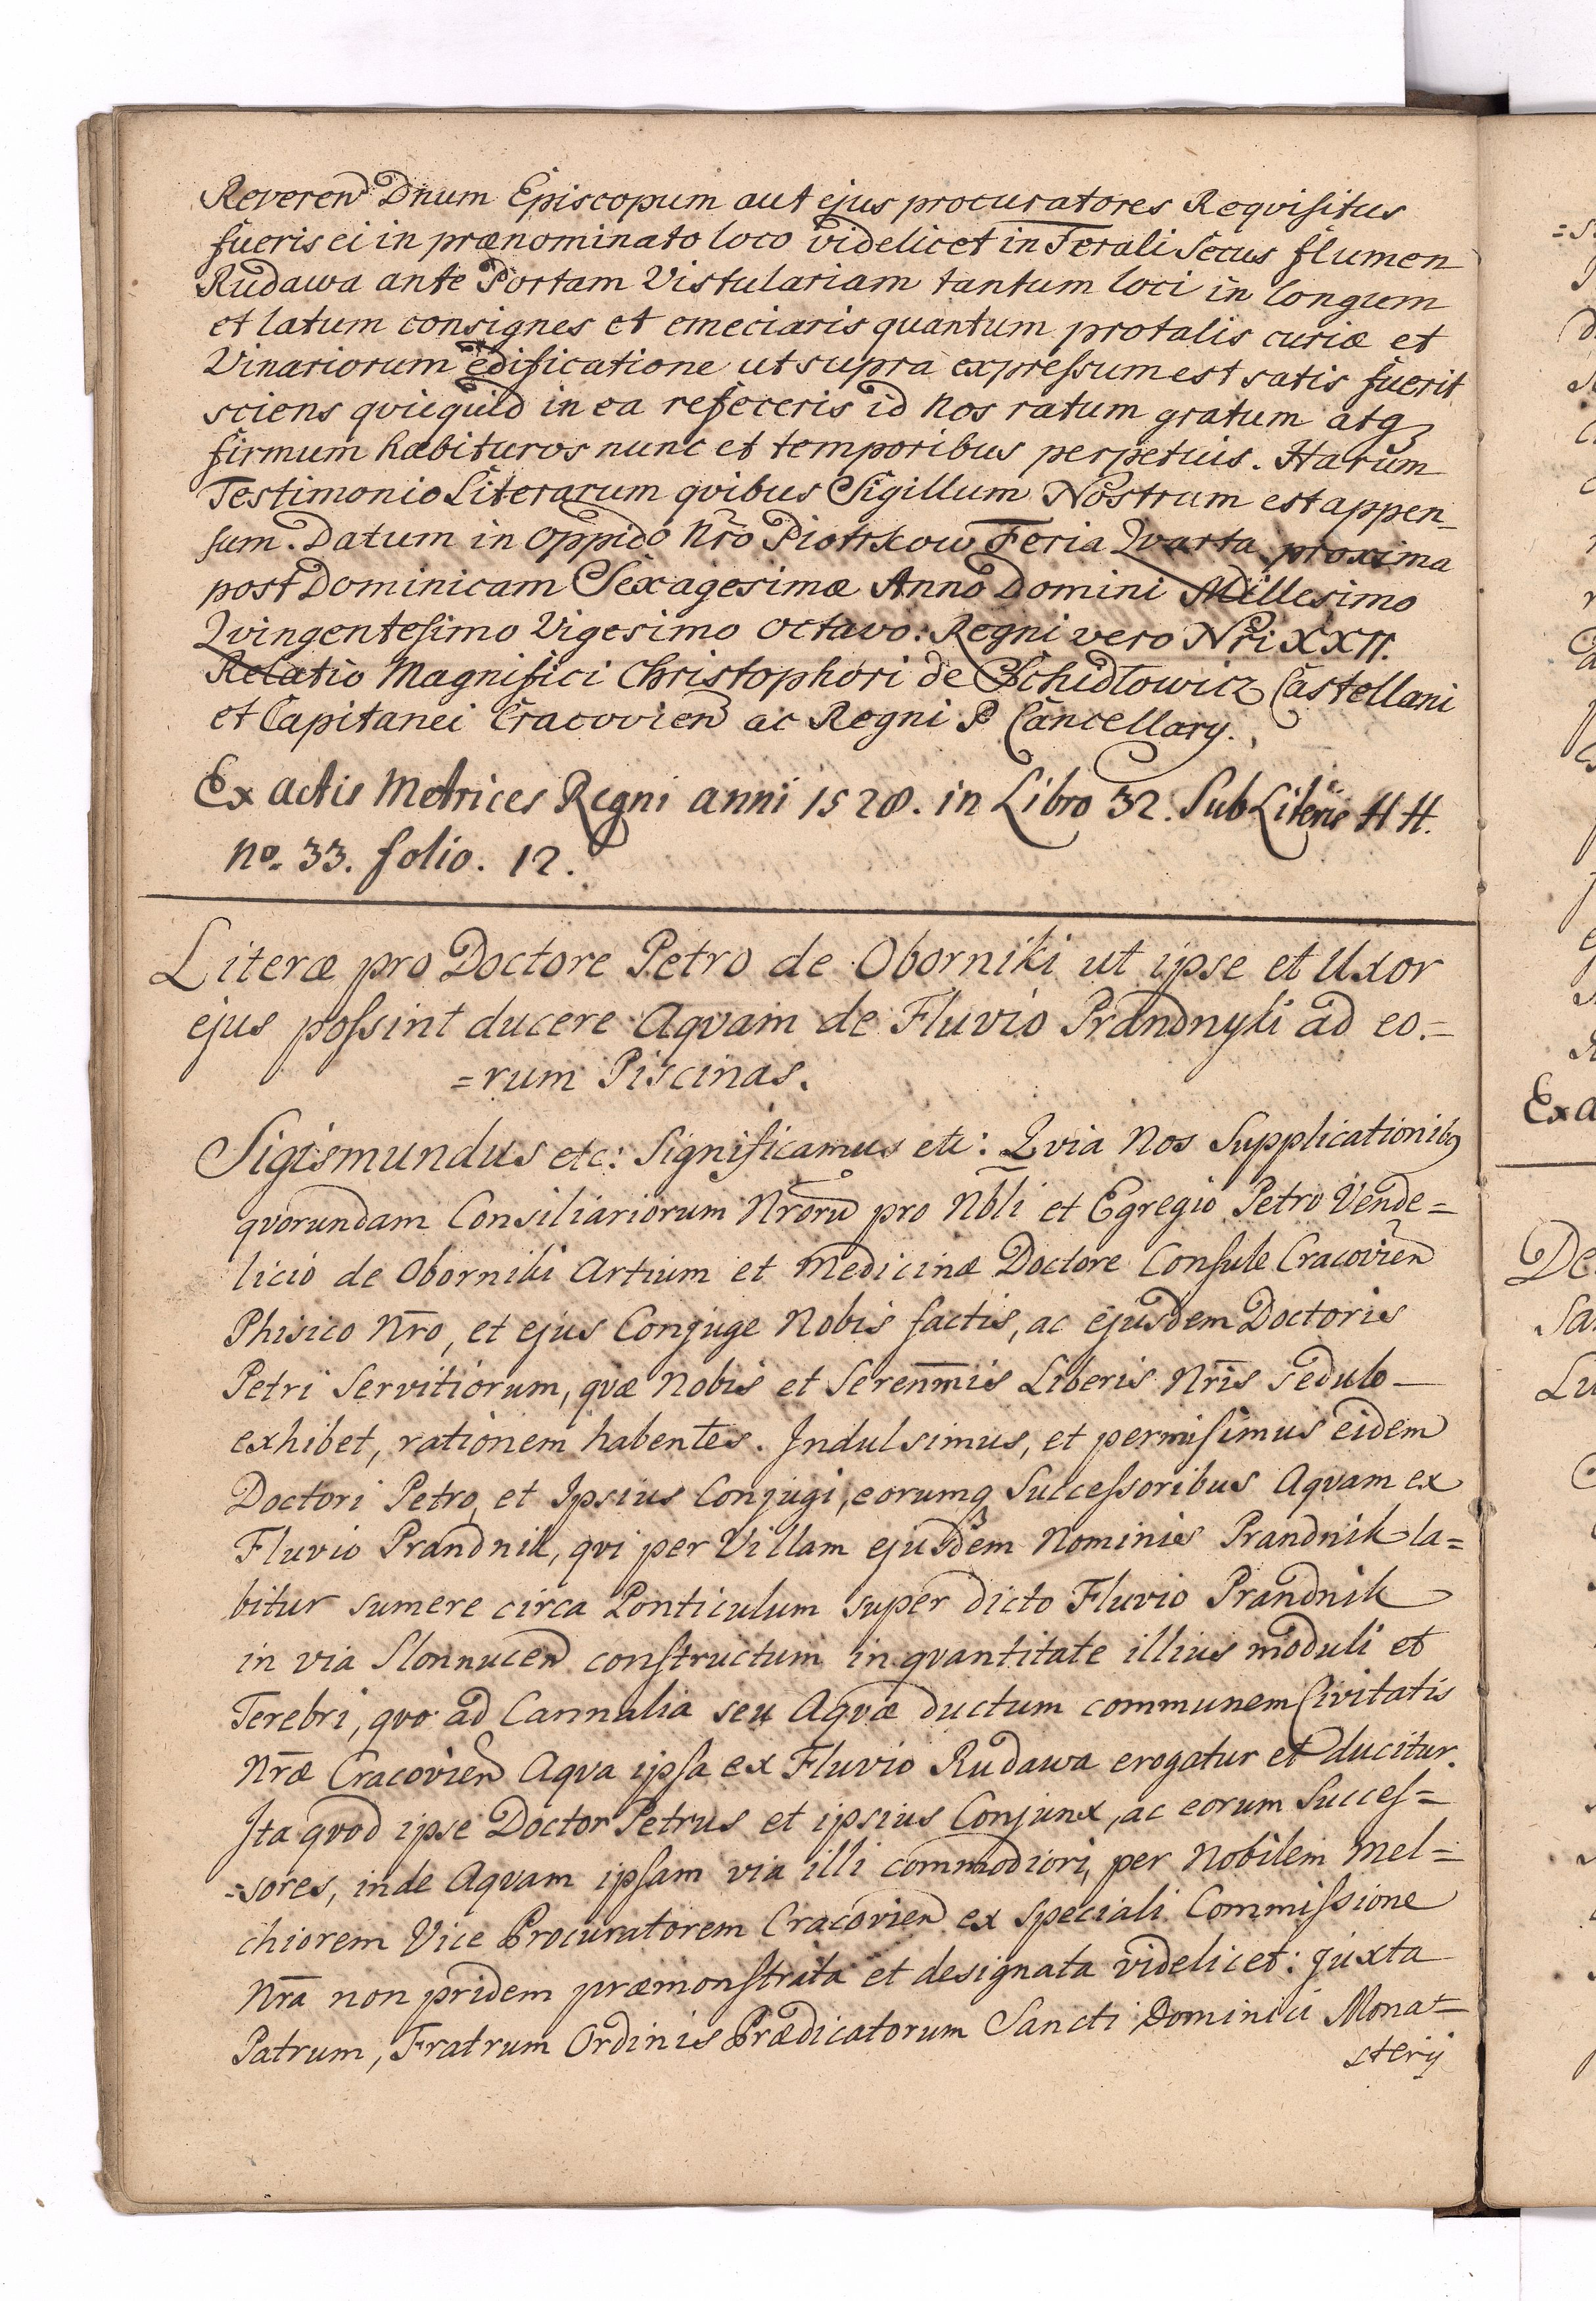 Reverend Dnum Episcopum aut ejus procuratores Reqvisitus
fueris ei in prænominato loco videlicet in Ferali Secus flumen
Rudawa ante Portam Vistulariam tantum loci in longum
et latum consignes et emeciaris quantum protalis curiæ et
Vinariorum edificatione ut supra expressum est satis fuerit
sciens qvicquid in ea refeceris id nos ratum gratum atq3
firmum habituros nunc et temporibus perpetuis. Harum
Testimonio Literarum qvibus Sigillum Nostrum est appen-
sum. Datum in oppido Nr̄o Piotrkow Feria Qvarta proxima
post Dominicam Sexagesimæ Anno Domini Millesimo
Qvingentesimo Vigesimo octavo: Regni vero Nr̄i XXII.
Relatio Magnifici Christophori de Schidlowicz Castellani
et Capitanei Cracovien ac Regni P Cancellary.
Ex actis Metrices Regni anni 1528. in Libro 32. Sub Literis HH.
no. 33. folio. 12.
Literæ pro Doctore Petro de Oborniki ut ipse et Uxor
ejus possint ducere Aqvam de Fluvio Prandnyki ad eo.=
=rum Piscinas.
Sigismundus etc: Significamus etc: Qvia Nos Supplicationibꝫ
qvorundam Consiliariorum Nrorū pro Nb̄li et Egregio Petro Vende=
licio de Oborniki Artium et Medicinæ Doctore Consule Cracovien
Phisico Nr̄o, et ejus Conjuge Nobis factis, ac ejusdem Doctoris
Petri Servitiorum, qvæ Nobis et Seren̄mis Liberis Nr̄is sedulo
exhibet, rationem habentes. Indulsimus, et permisimus eidem
Doctori Petro, et Ipsius Conjugi, eorumq3 Successoribus Aqvam ex
Fluvio Prandnik, qvi per Villam ejusdem Nominis Prandnik la=
bitur sumere circa Ponticulum super dicto Fluvio Prandnik
in via Slonnucen constructum in qvantitate illius moduli et
Terebri, qvo ad Cannalia seu Aqvæ ductum communem Civitatis
Nr̄æ Cracovien Aqva ipsa ex Fluvio Rudawa erogatur et ducitur.
Ita qvod ipse Doctor Petrus et ipsius Conjunx, ac eorum Succes=
=sores, inde Aqvam ipsam via illi commodiori, per Nobilem Mel=
chiorem Vice Procuratorem Cracovien ex speciali Commissione
Nr̄a non pridem præmonstrata et designata videlicet: juxta
Patrum, Fratrum Ordinis Prædicatorum Sancti Dominici Mona=
sterij